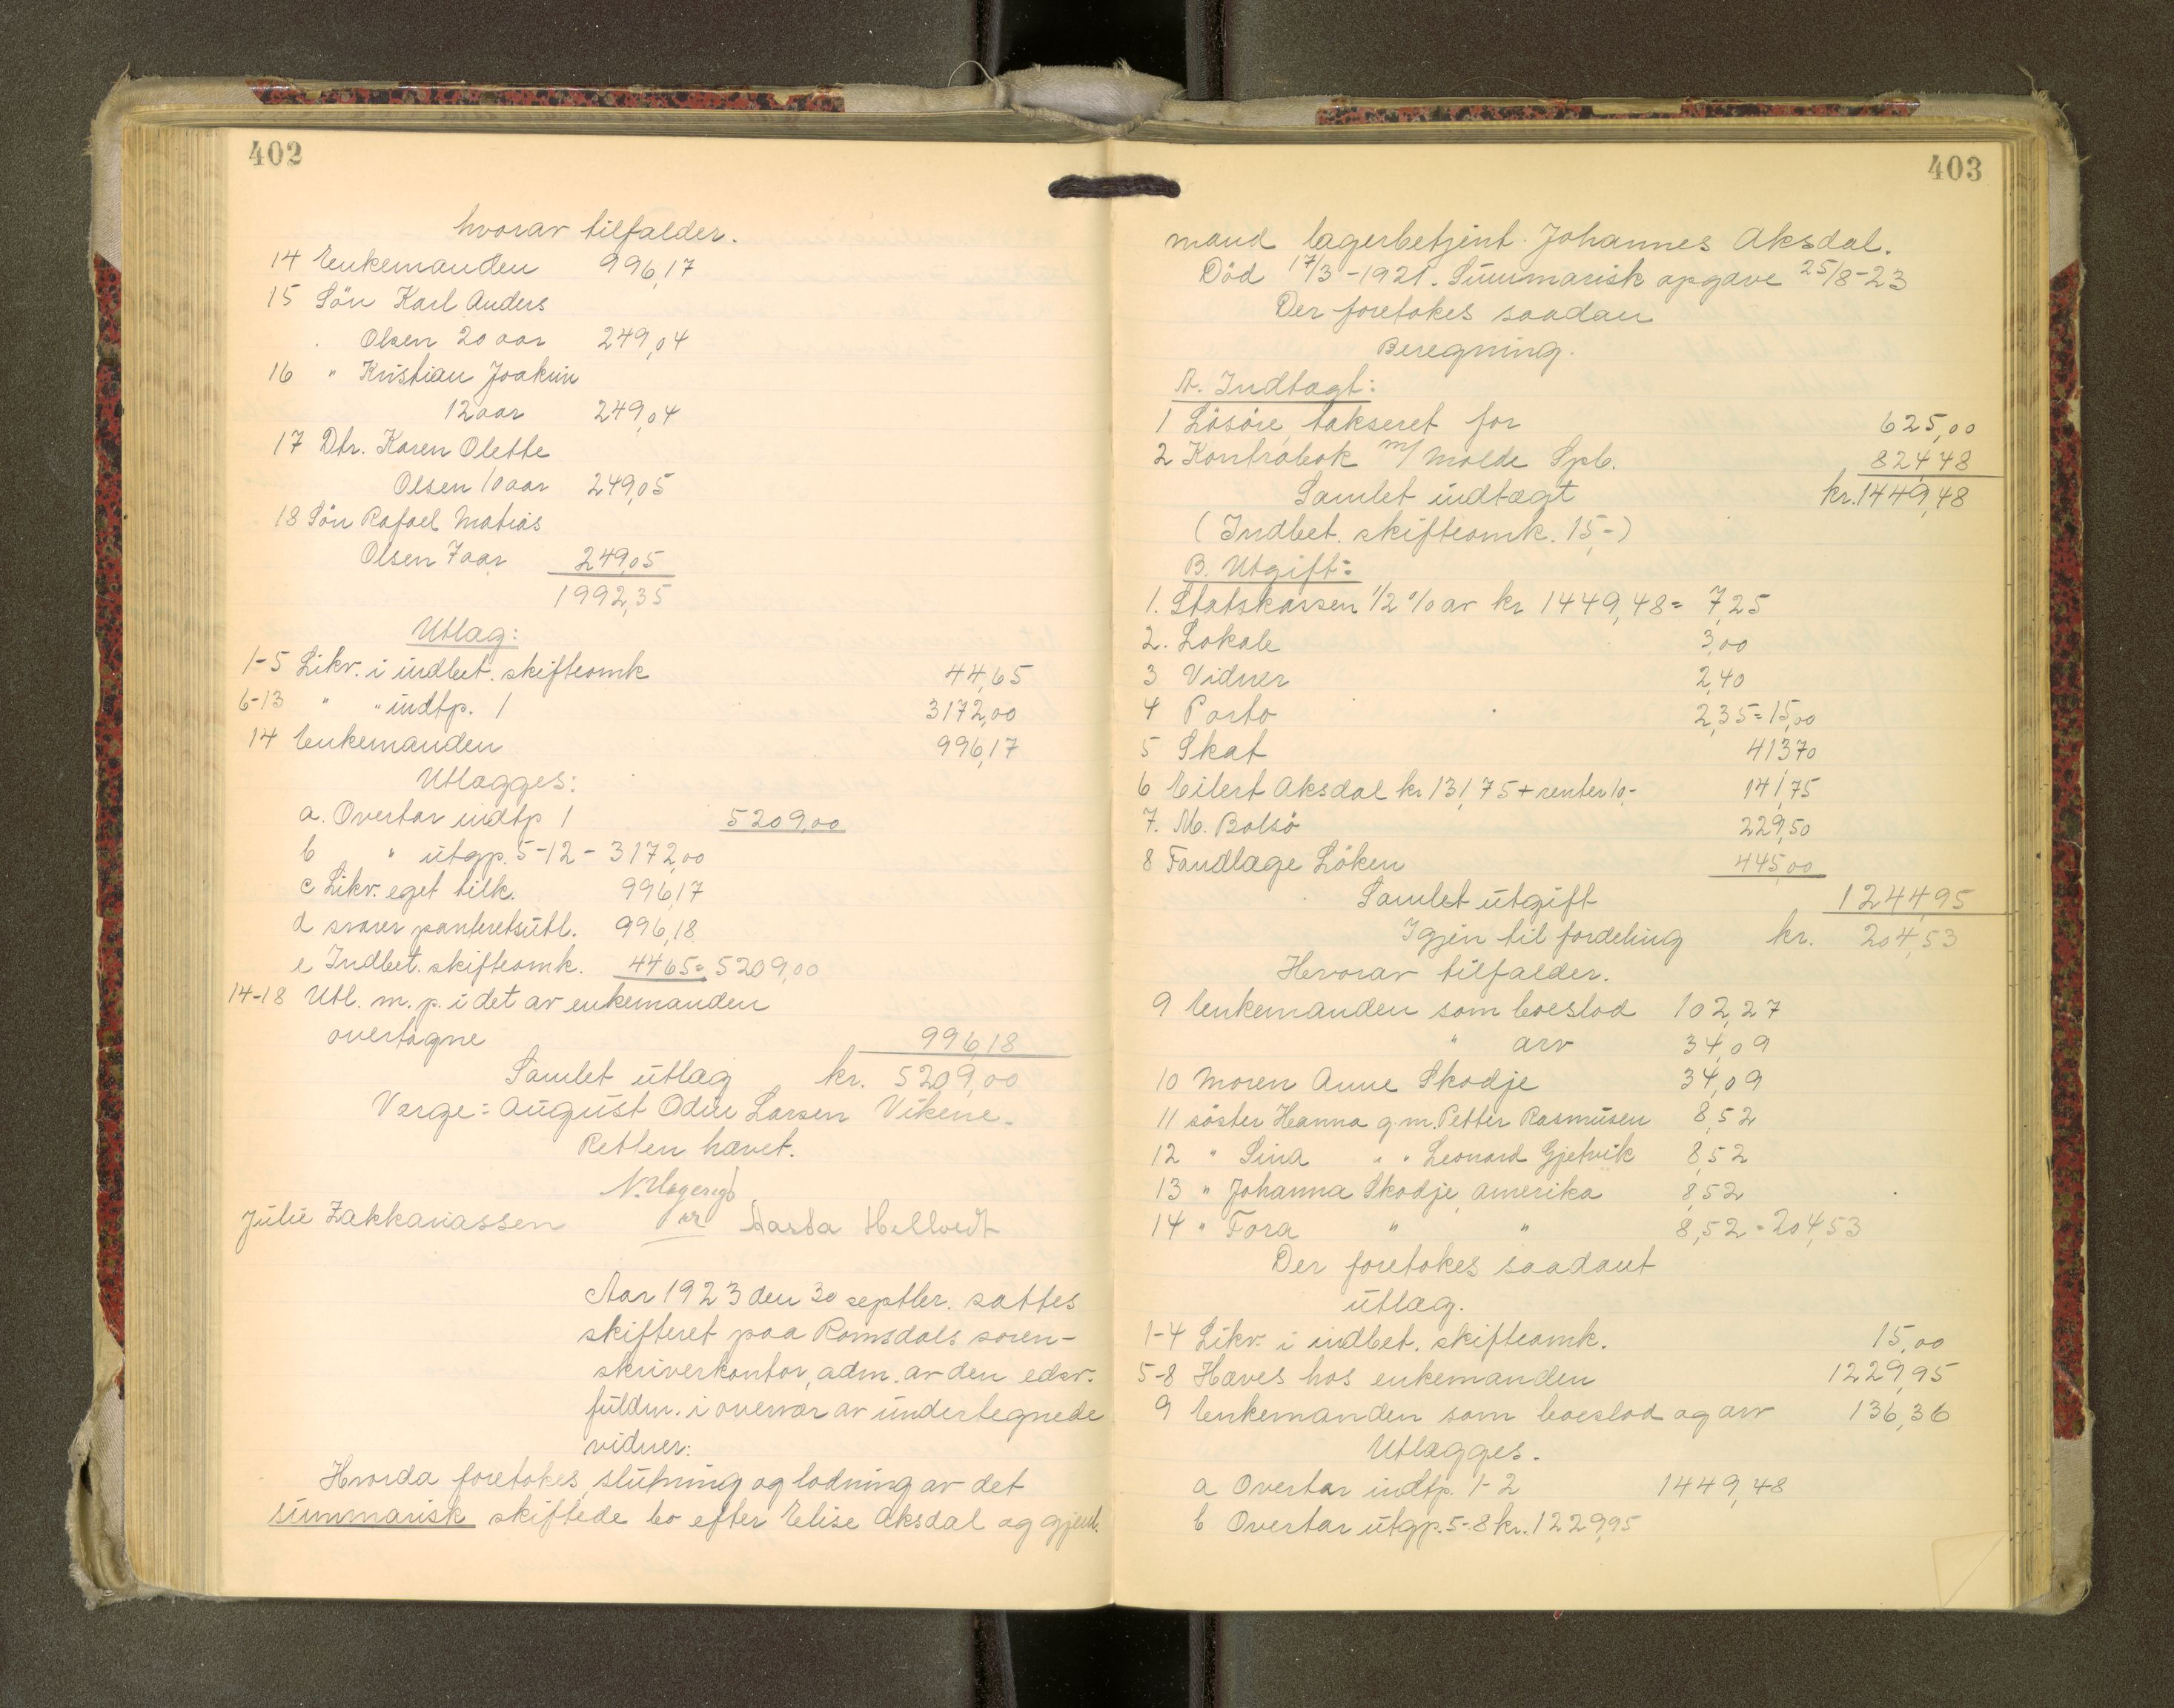 402
hvorav tilfalder.
14 Enkemanden 996,17
15 Sön Karl Anders
Olsen 20 aar 249,04
16 " Kristian Joakim
12 aar 249,04
17 Dtr. Karen Olette
Olsen 10 aar 249,05
18 Sön Rafael Matias
Olsen 7 aar 249,05
1992,35
Utlæg:
1-5 Likv. i indbet. skifteomk 44,65
6-13 " " indtp. 1 3172,00
14 Enkemanden 996,17
Utlægges:
a. Overtar indtp 1 5209,00
b " utgp. 5-12 - 3172,00
c Likv. eget tilk. 996,17
d svarer panteretsutl. 996,18
e Indbet. skifteomk. 44,65 = 5209,00
14-18 Utl. m. p. i det av enkemanden
overtagne 996,18
Samlet utlæg kr. 5209,00
Verge = August Odin Larsen Vikene.
Retten hævet.
Julie Zakkariassen Aasta Hellvedt
Aar 1923 den 30 septber. sattes
skifteret paa Romsdals soren-
skriverkontor, adm. av den edsv.
fuldm. i overvær av undertegnede
vidner:
Hvorda foretokes slutning og lodning av det
summarisk skiftede bo efter Elise Aksdal og gjenl.
403
mand lagerbetjent Johannes Aksdal.
Död 17/3-1921. Summarisk opgave 25/8-23
Der foretokes saadan
Beregning.
A. Indtægt:
1 Lösöre takseret for 625,00
2 Kontrabok m/ Molde Spb. 824,48
Samlet indtægt kr. 1449,48
(Indbet. skifteomk. 15,-)
B. Utgift:
1. Statskassen 1/2 % av kr 1449,48 = 7,25
2. Lokale 3,00
3 Vidner 2,40
4 Porto 2,35 = 15,00
5 Skat 413,70
6 Eilert Aksdal kr 131,75 + renter 10,- 141,75
7. M. Bolsö 229,50
8 Tandlæge Löken 445,00
Samlet utgift 1244,95
Igjen til fordeling kr. 204,53
Hvorav tilfalder.
9 Enkemanden som boeslod 102,27
" arv 34,09
10 Moren Anne Skodje 34,09
11 söster Hanna g.m. Petter Rasmusen 8,52
12 " Sina " " Leonard Gjetvik 8,52
13 " Johanna Skodje, Amerika 8,52
14 " Tora " " 8,52 = 204,53
Der foretokes saadant
utlæg.
1-4 Likv. i indbet. skifteomk. 15,00
5-8 Hæves hos enkemanden 1229,95
9 Enkemanden som boeslod og arv 136,36
Utlægges.
a Overtar indtp. 1-2 1449,48
b Overtar utgp. 5-8 kr. 1229,95